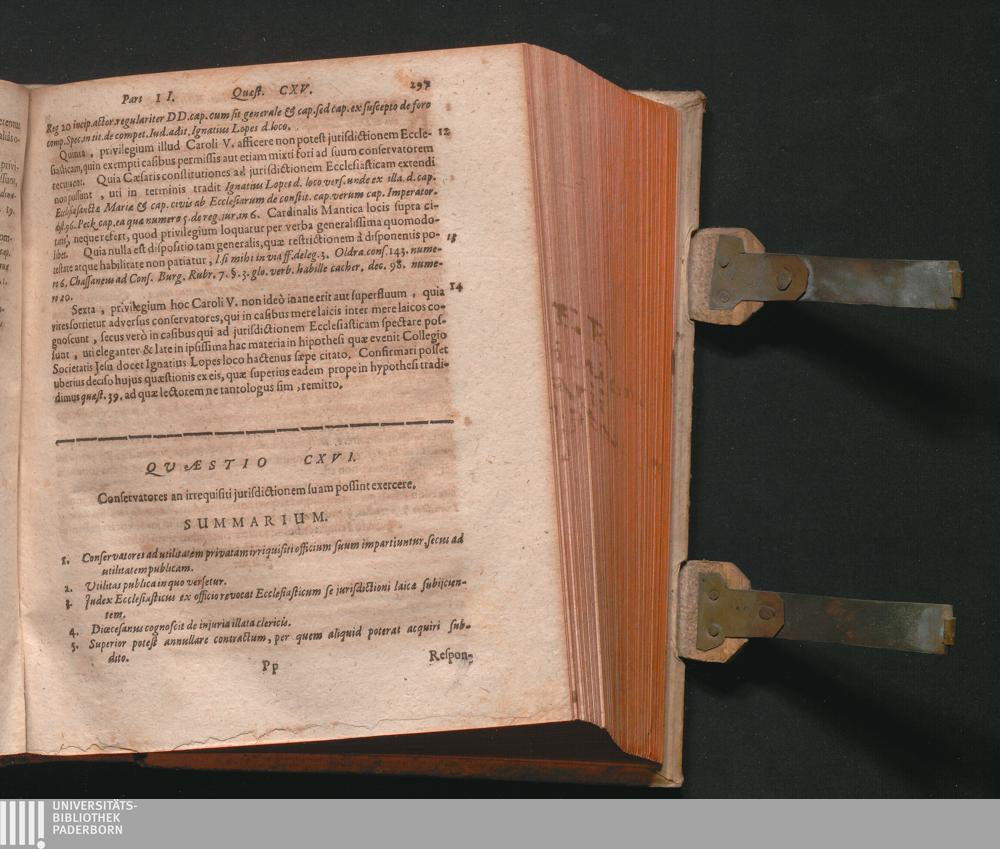 Part II. Quæst. CXV. 297
Reg 20 incip. actor. regulariter DD. cap. cum sit generale & cap. sed cap. ex suscepto de foro
comp. Spec. in tit. de compet. Iud. adit. Ignatius Lopes d. loco.
Quinta, privilegium illud Caroli V. afficere non potest jurisdictionem Eccle- 12
siasticam, quin exempti casibus permissis aut etiam mixti fori ad suum conservatorem
recurrent. Quia Cæsaris constitutiones ad jurisdictionem Ecclesiasticam extendi
non possunt, uti in terminis tradit Ignatius Lopes d. loco vers. unde ex illa. d. cap.
Ecclesia sanctæ Mariæ & cap. civis ab Ecclesiarum de constit. cap. verum cap. Imperator.
dist. 96. Peck. cap. ea quæ numero 5. de reg. iur. in 6. Cardinalis Mantica locis supra ci-
tatis, neque refert, quod privilegium loquatur per verba generalissima quomodo-
libet. Quia nulla est dispositio tam generalis, quæ restrictionem à disponentis po- 13
testate atque habilitate non patiatur, l. si mihi in via ff. deleg. 3. Oldra. cons. 143. nume-
ro 6, Chassaneus ad Cons. Burg. Rubr. 7. §. 3. glo. verb. habille cacher, dec. 98. nume-
ro 20.
Sexta, privilegium hoc Caroli V. non ideò inane erit aut superfluum, quia 14
vires sortietur adversus conservatores, qui in casibus mere laicis inter mere laicos co-
gnoscunt, secus verò in casibus qui ad jurisdictionem Ecclesiasticam spectare pos-
sunt, uti eleganter & late in ipsissima hac materia in hipothesi quæ evenit Collegio
Societatis Jesu docet Ignatius Lopes loco hactenus sæpe citato. Confirmari posset
uberius deciso hujus quæstionis ex eis, quæ superius eadem prope in hypothesi tradi-
dimus quæst. 39. ad quæ lectorem ne tantologus sim, remitto.
QUÆSTIO CXVI.
Conservatores an irrequisiti jurisdictionem suam possint exercere.
SUMMARIUM.
1. Conservatores ad utilitatem privatam irriquisiti officium suum impartiuntur, secus ad
utilitatem publicam.
2. Utilitas publica in quo versetur.
3. Judex Ecclesiasticus ex officio revocat Ecclesiasticum se jurisdictioni laicæ subijcien-
tem.
4. Diœcesanus cognoscit de injuria illata clericis.
5. Superior potest annullare contractum, per quem aliquid poterat acquiri sub-
dito.
Pp Respon-
UNIVERSITÄTS-
BIBLIOTHEK
PADERBORN